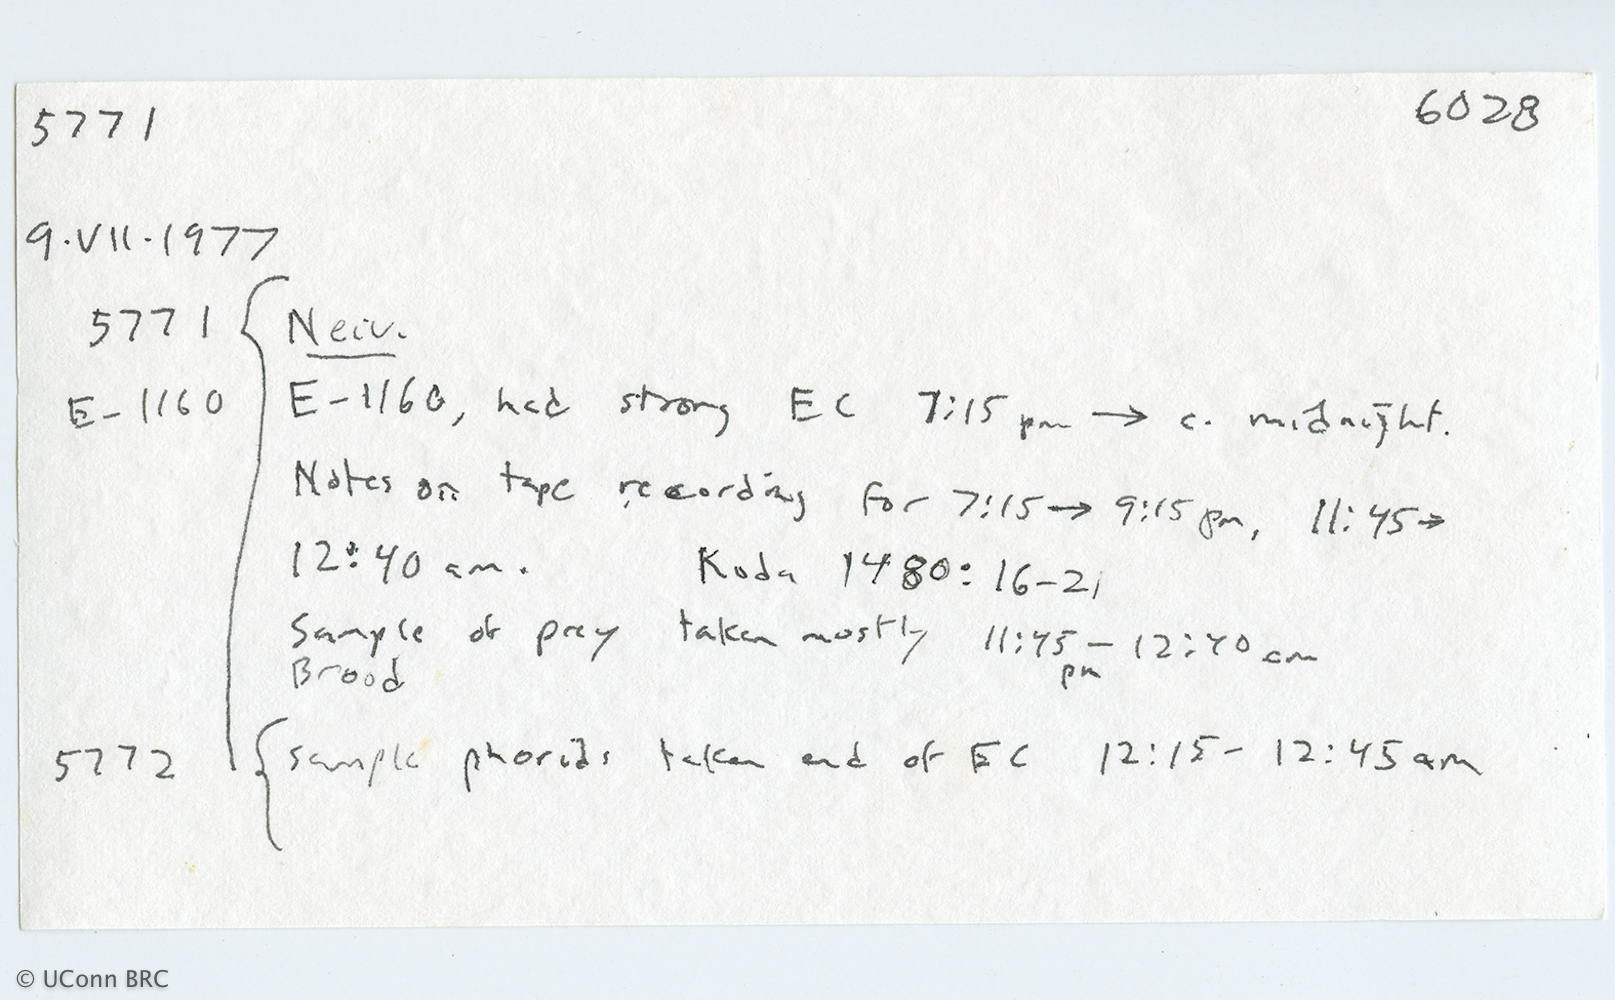 5771 6028
9.VII.1977
5771 Neiv.
E-1160 E-1160, had strong EC 7:15 pm → c. midnight.
Notes on tape recording for 7:15 → 9:15 pm, 11:45 →
12:40 am. Koda 1480: 16-21
Sample of prey taken mostly 11:45 pm - 12:40 am
Brood
5772 Sample phorids taken end of EC 12:15 - 12:45 am
© UConn BRC